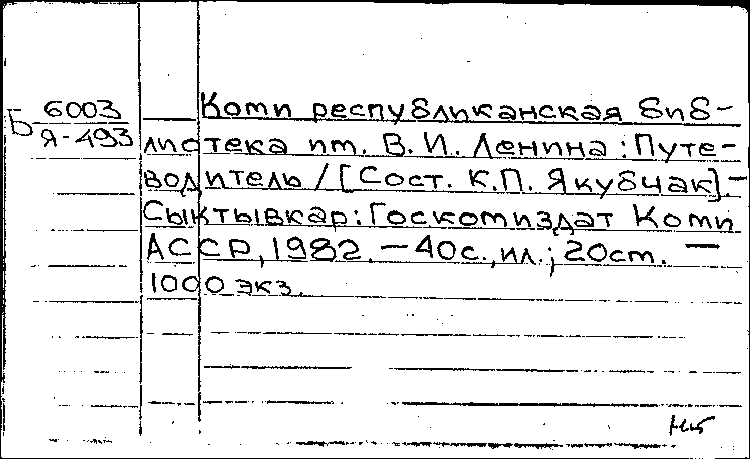 Б 6003
Я-493
Коми республиканская биб-
лиотека им. В. И. Ленина : Путе-
водитель / [Сост. К.П. Якубчак].–
Сыктывкар: Госкомиздат Коми
АССР, 1982. – 40с., ил.; 20см. –
1000 экз.